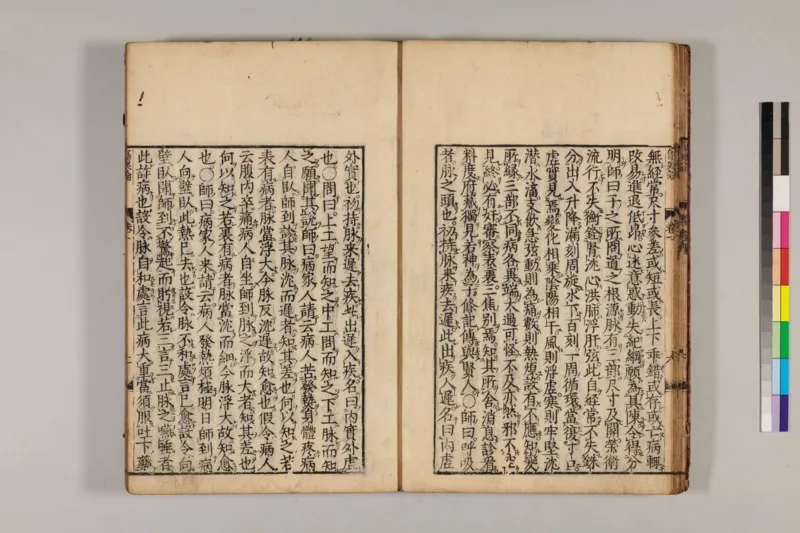 無經常尺寸參差或短或長上下乖錯或存或亡病輒
改易進退低昂心迷意惑動失紀綱願為具陳令得分
明師曰子之所問道之根源脉有三部尺寸及關榮衛
流行不失衡銓腎沈心洪肺浮肝弦此自經常不失銖
分出入升降漏刻周旋水下百刻一周循環當復寸口
虛實見焉變化相乘陰陽相干風則浮虛寒則牢堅沈
潛水滴支飲急弦動則為痛數則熱煩設有不應知變
所緣三部不同病各異端太過可怪不及亦然邪不
見終必有奸審察表裏三焦別焉知其所舍消息診看
料度府藏獨見若神為子條記傳與賢人〇師曰呼吸
者脉之頭也初持脉來疾去遲此出疾入遲名曰内虛
外實也初持脉來遲去疾此出遲入疾名曰内實外虛
也〇問曰上工望而知之中工問而知之下工脉而知
之願聞其説師曰病家人請云病人苦發熱身體疼病
人自臥師到診其脉沈而遲者知其差也何以知之若
表有病者脉當浮大今脉反沈遲故知愈也假令病人
云腹内卒痛病人自坐師到脉之浮而大者知其差也
何以知之若裏有病者脉當沈而細今脉浮大故知愈
也〇師曰病家人來請云病人發熱煩極明日師到病
人向壁臥此熱已去也設令脉不和處言已愈設令向
壁臥聞師到不驚起而盻視若三言三止脉之嚥唾者
此詐病也設令脉自和處言此病大重當須服吐下藥